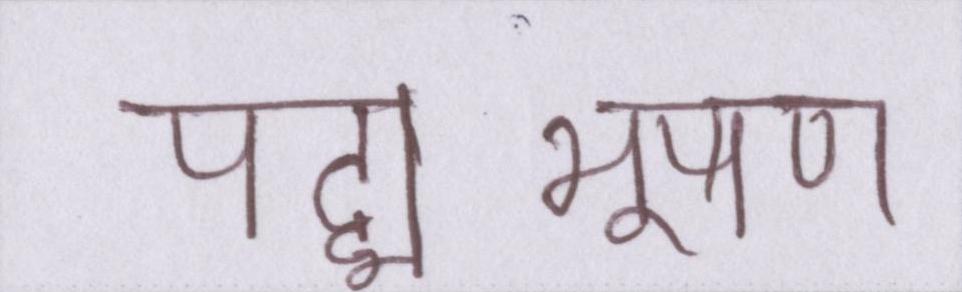 पद्म भूषण